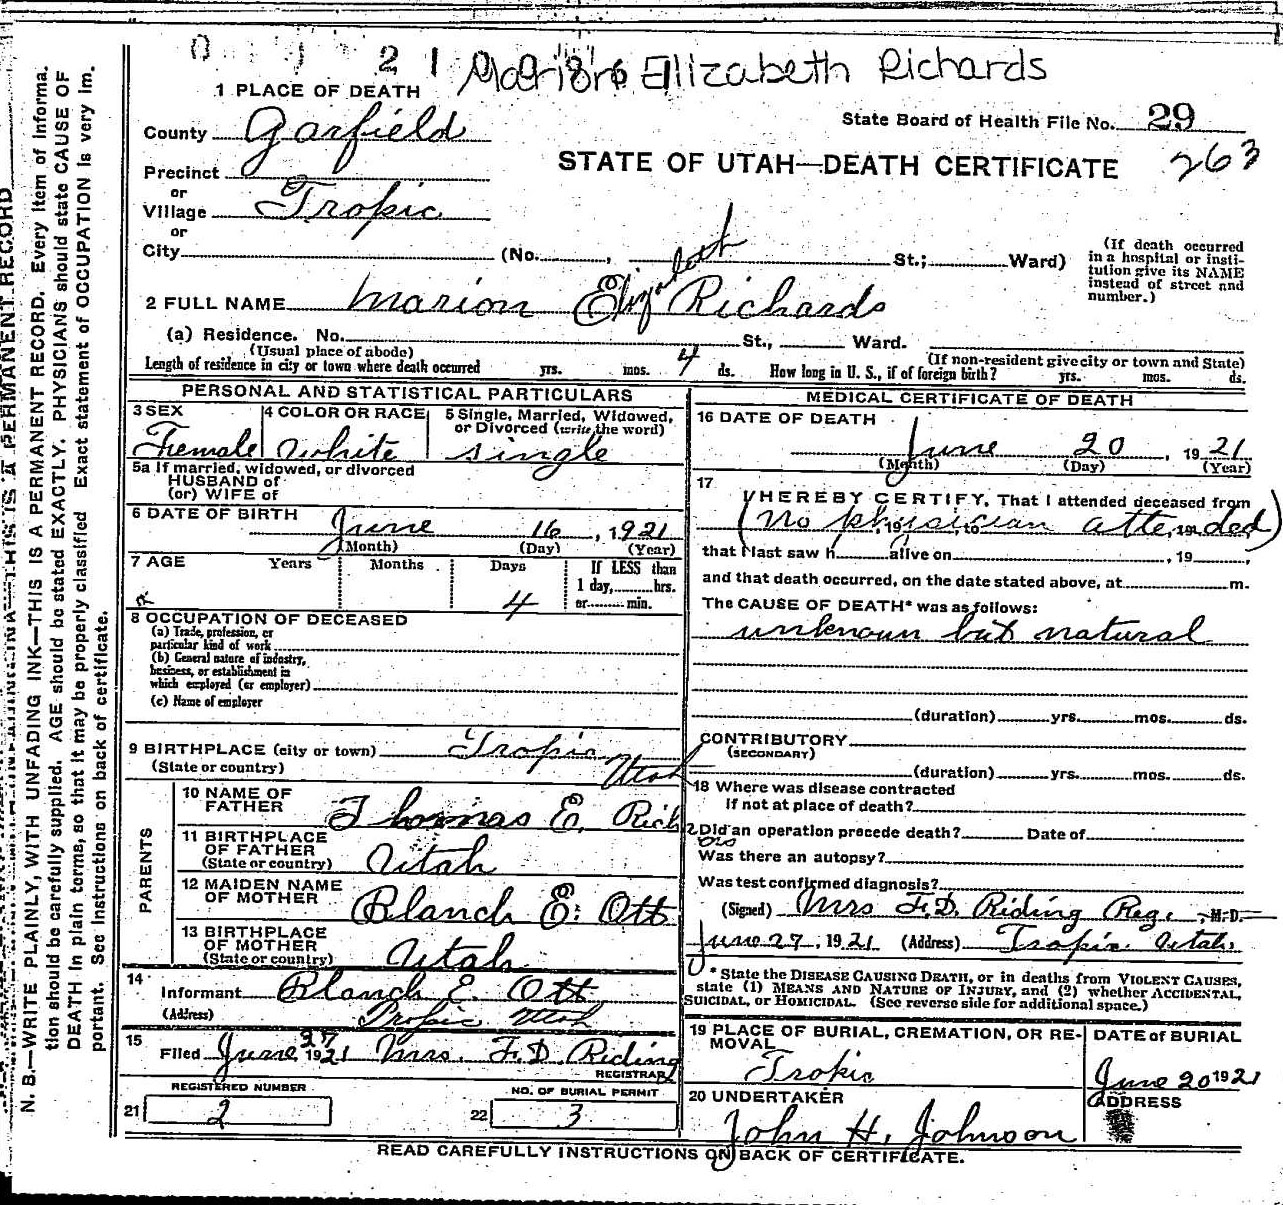 2 1 Marion Elizabeth Richards
1 PLACE OF DEATH
State Board of Health File No. 29
County Garfield
STATE OF UTAH—DEATH CERTIFICATE 263
Precinct
or
Village Tropic
or
City (No. , St.; Ward)
(If death occurred
in a hospital or insti-
tution give its NAME
instead of street and
number.)
2 FULL NAME Marion Elizabeth Richards
(a) Residence. No. St., Ward.
(Usual place of abode) (If non-resident give city or town and State)
Length of residence in city or town where death occurred yrs. mos. 4 ds. How long in U. S., if of foreign birth? yrs. mos. ds.
PERSONAL AND STATISTICAL PARTICULARS
3 SEX 4 COLOR OR RACE 5 Single, Married, Widowed,
or Divorced (write the word)
Female White single
5a If married, widowed, or divorced
HUSBAND of
(or) WIFE of
6 DATE OF BIRTH
June 16, 1921
(Month) (Day) (Year)
7 AGE Years Months Days If LESS than
1 day, hrs.
4 or min.
8 OCCUPATION OF DECEASED
(a) Trade, profession, or
particular kind of work
(b) General nature of industry,
business, or establishment in
which employed (or employer)
(c) Name of employer
9 BIRTHPLACE (city or town) Tropic
(State or country) Utah
PARENTS
10 NAME OF
FATHER Thomas E. Richards
11 BIRTHPLACE
OF FATHER
(State or country) Utah
12 MAIDEN NAME
OF MOTHER Blanch E. Ott
13 BIRTHPLACE
OF MOTHER
(State or country) Utah
14
Informant Blanch E. Ott
(Address) Tropic Utah
15
Filed June 27 1921 Mrs. F. D. Riding
REGISTRAR
REGISTERED NUMBER NO. OF BURIAL PERMIT
21 2 22 3
MEDICAL CERTIFICATE OF DEATH
16 DATE OF DEATH
June 20, 1921
(Month) (Day) (Year)
17
I HEREBY CERTIFY, That I attended deceased from
(No physician attended)
, 19 , to , 19
that I last saw h alive on , 19 ,
and that death occurred, on the date stated above, at m.
The CAUSE OF DEATH* was as follows:
unknown but natural
(duration) yrs. mos. ds.
CONTRIBUTORY
(SECONDARY)
(duration) yrs. mos. ds.
18 Where was disease contracted
if not at place of death?
Did an operation precede death? Date of
Was there an autopsy?
Was test confirmed diagnosis?
(Signed) Mrs F. D. Riding Reg. , M. D.
June 27, 1921 (Address) Tropic Utah.
* State the DISEASE CAUSING DEATH, or in deaths from VIOLENT CAUSES,
state (1) MEANS AND NATURE OF INJURY, and (2) whether ACCIDENTAL,
SUICIDAL, or HOMICIDAL. (See reverse side for additional space.)
19 PLACE OF BURIAL, CREMATION, OR RE-
MOVAL DATE of BURIAL
Tropic June 20 1921
20 UNDERTAKER ADDRESS
John H. Johnson
READ CAREFULLY INSTRUCTIONS ON BACK OF CERTIFICATE.
N. B.—WRITE PLAINLY, WITH UNFADING INK—THIS IS A PERMANENT RECORD. Every item of informa-
tion should be carefully supplied. AGE should be stated EXACTLY. PHYSICIANS should state CAUSE OF
DEATH in plain terms, so that it may be properly classified. Exact statement of OCCUPATION is very im-
portant. See instructions on back of certificate.